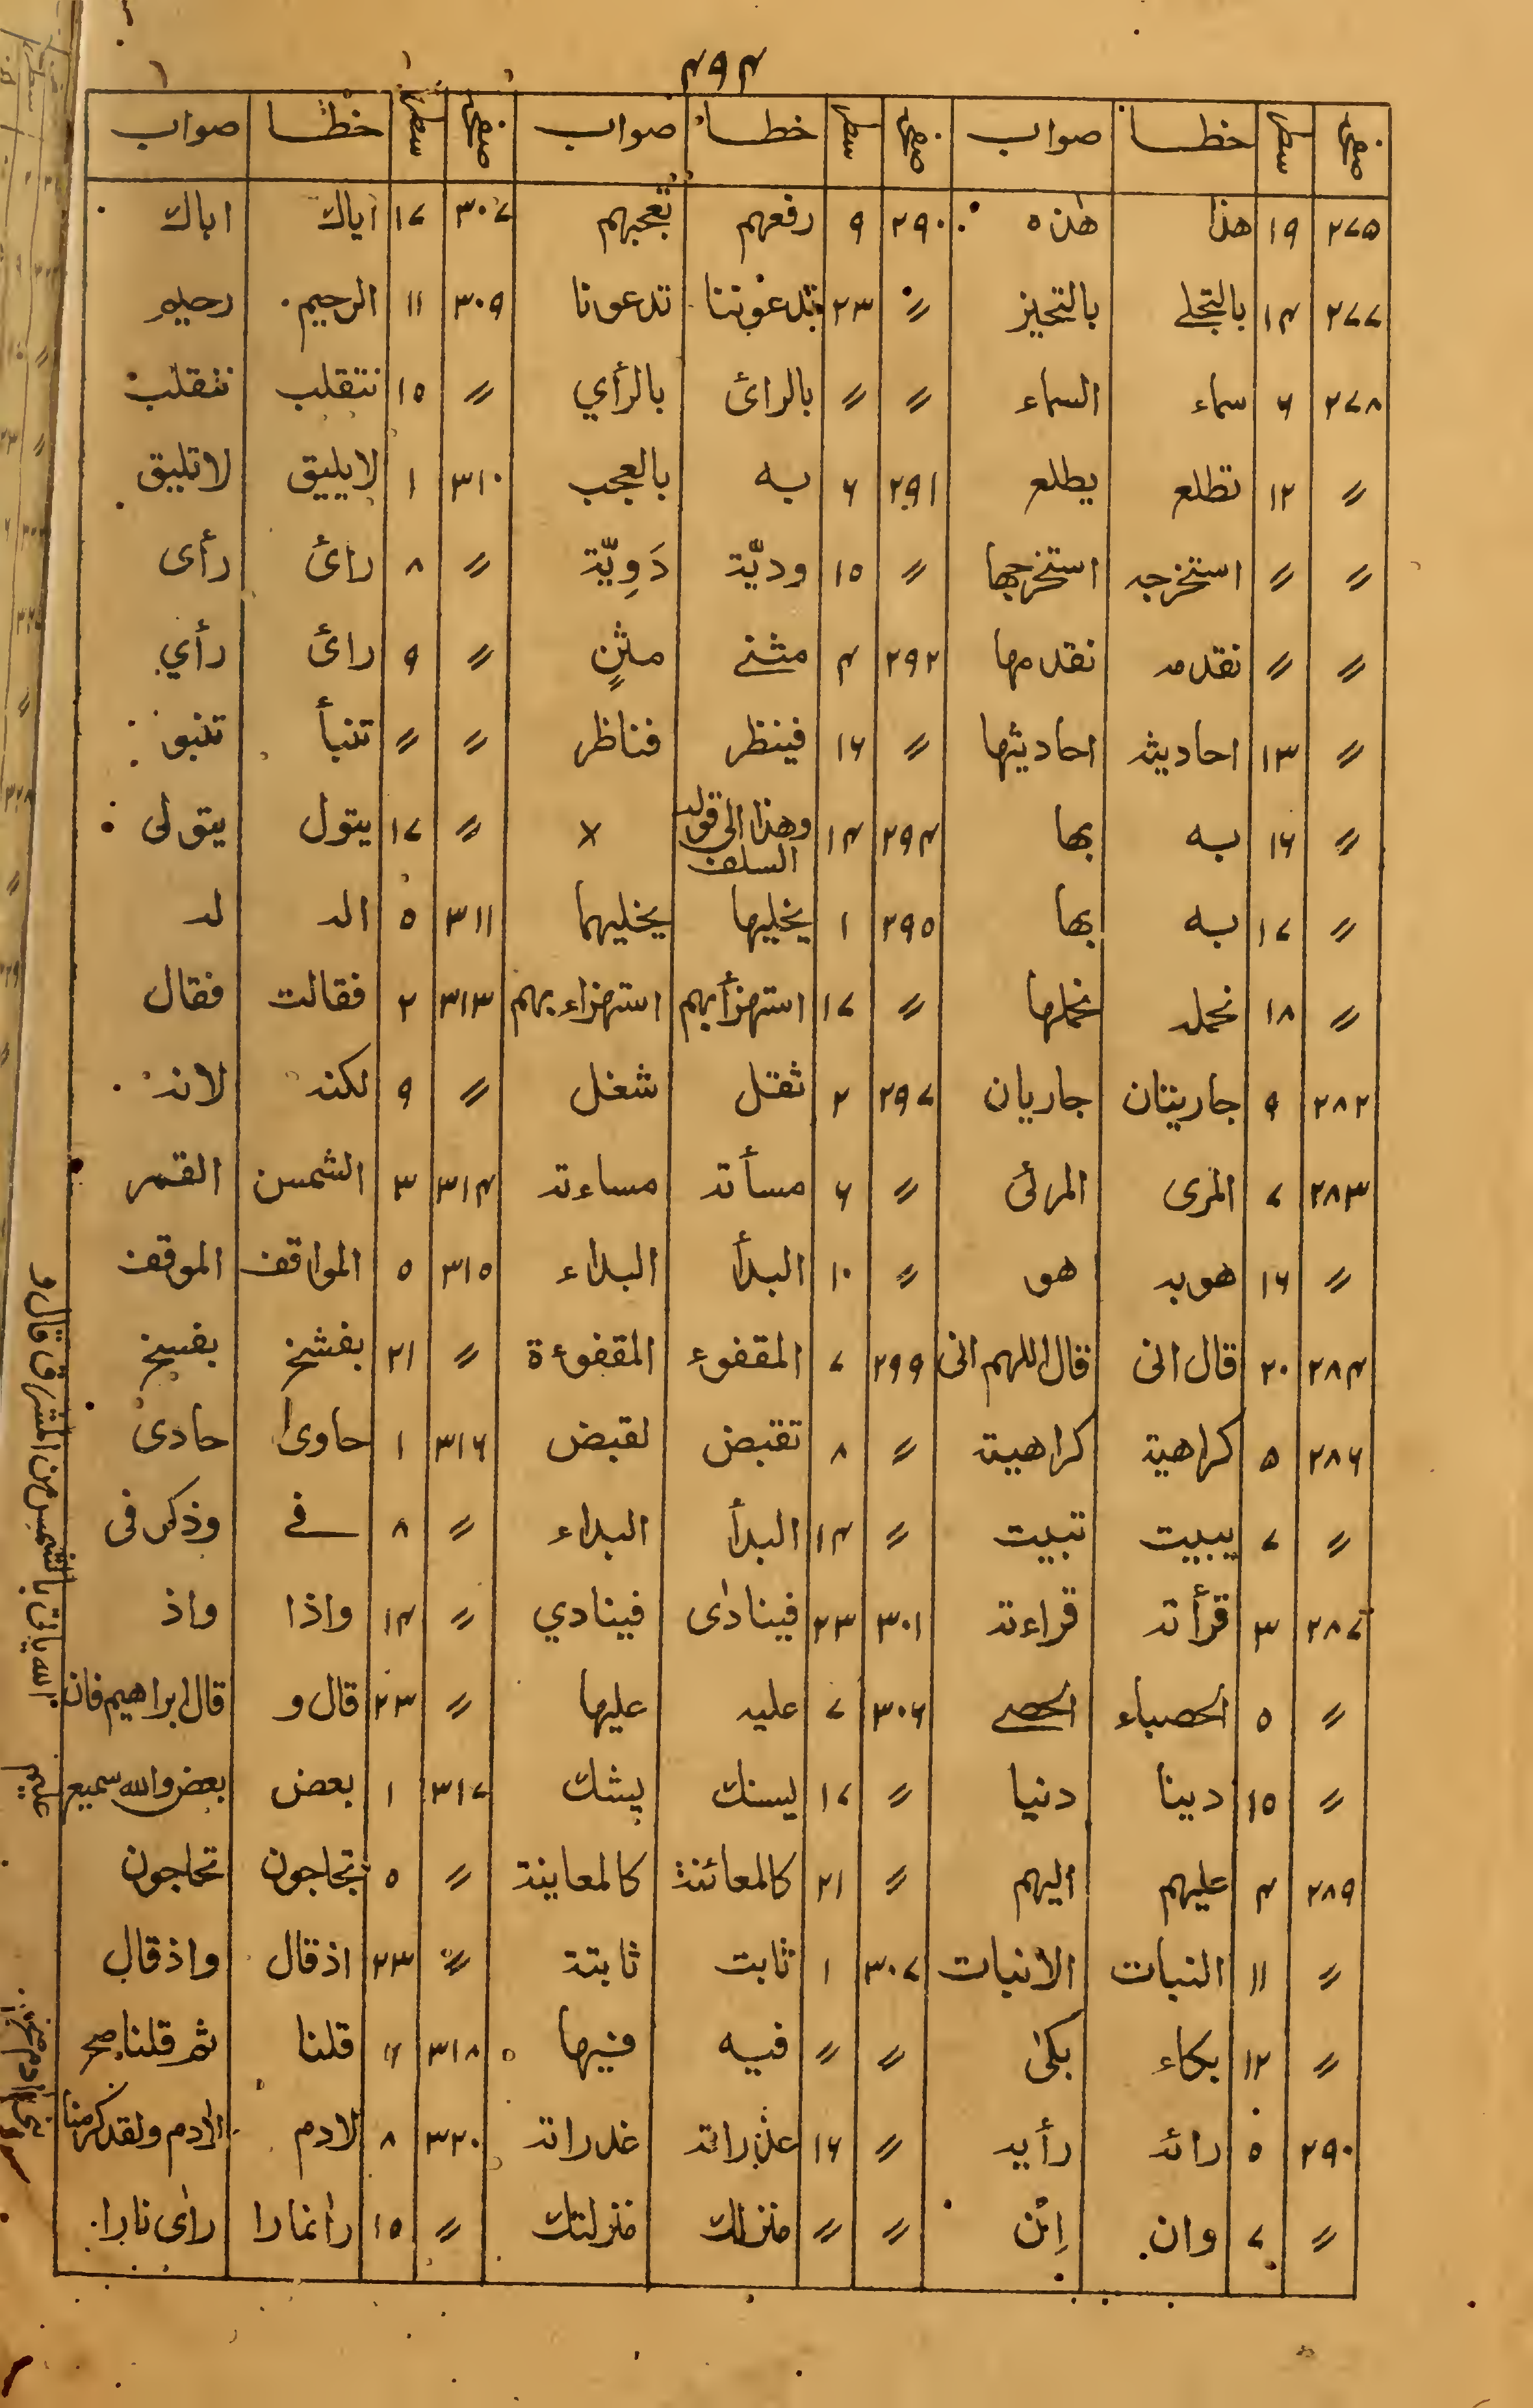 ۴۹۴
صفحہ سطر خطا صواب صفحہ سطر خطا صواب صفحہ سطر خطا صواب
۲۷۵ ۱۹ هذا هذه ۲۹۰ ۹ رفعهم تعجبهم ۳۰۷ ۱۷ اياك اباك
۲۷۷ ۱۴ بالتجلے بالتحيز 〃 ۲۳ تدعوننا تدعونا ۳۰۹ ۱۱ الرحيم رحيم
۲۷۸ ۶ سماء السماء 〃 〃 بالرائ بالرأي 〃 ۱۵ نتقلب تتقلب
〃 ۱۲ تطلع يطلع ۲۹۱ ۶ به بالعجب ۳۱۰ ۱ لايليق لاتليق
〃 〃 استخرجه استخرجها 〃 ۱۵ وديّة دَوِيّة 〃 ۸ رائ رأى
〃 〃 نقدمه نقدمها ۲۹۲ ۴ مثنے مثنٍ 〃 ۹ رائ رأي
〃 ۱۳ احاديثه احاديثها 〃 ۱۶ فينظر فناظر 〃 〃 تنبأ تنبؤ
〃 ۱۶ به بها ۲۹۴ ۱۴ وهذا الى قوله السلف × 〃 ۱۷ يتول يتولى
〃 ۱۷ به بها ۲۹۵ ۱ يخليها يخليهما ۳۱۱ ۵ اله له
〃 ۱۸ نحمله نحملها 〃 ۱۷ استهزأبهم استهزاءبهم ۳۱۳ ۲ فقالت فقال
۲۸۲ ۹ جاريتان جاريان ۲۹۷ ۲ ثقتل شغل 〃 ۹ لكنه لانه
۲۸۳ ۷ المرى المرئى 〃 ۶ مسأته مساءته ۳۱۴ ۳ الشمس القمر
〃 ۱۶ هوبه هو 〃 ۱۰ البدأ البداء ۳۱۵ ۵ المواقف الموقف
۲۸۴ ۲۰ قال انى قال اللهم انى ۲۹۹ ۷ المقفوء المقفوءة 〃 ۲۱ بفشخ بفسخ
۲۸۶ ۵ كراهية كراهية 〃 ۸ تقبض لقبض ۳۱۶ ۱ حاوى حادى
〃 ۷ يبيت تبيت 〃 ۱۴ البدأ البداء 〃 ۸ فے وذكر فى
۲۸۷ ۳ قرأته قراءته ۳۰۱ ۲۳ فينادى فينادي 〃 ۱۴ واذا واذ
〃 ۵ الحصباء الحصے ۳۰۶ ۷ عليه عليها 〃 ۲۳ قال و قال ابراهيم فان
الله ياتى بالشمس من المشرق قال و
〃 ۱۵ دينا دنيا 〃 ۱۷ يسنك يشك ۳۱۷ ۱ بعض بعض والله سميع عليم
۲۸۹ ۴ عليهم اليهم 〃 ۲۱ كالمعائنة كالمعاينة 〃 ۵ تجاجون تحاجون
〃 ۱۱ النبات الانبات ۳۰۷ ۱ ثابت ثابتة 〃 ۲۳ اذقال واذقال
〃 ۱۲ بكاء بكى 〃 〃 فيه فيها ۳۱۸ ۶ قلنا ثم قلنا صح
۲۹۰ ۵ رائه رأيه 〃 ۱۶ عذراته غدراته ۳۲۰ ۸ لادم الادم ولقد كرمنا بنى ادم
〃 ۷ وان اِئن 〃 〃 منزلك منزلتك 〃 ۱۵ رانارا راى نارا